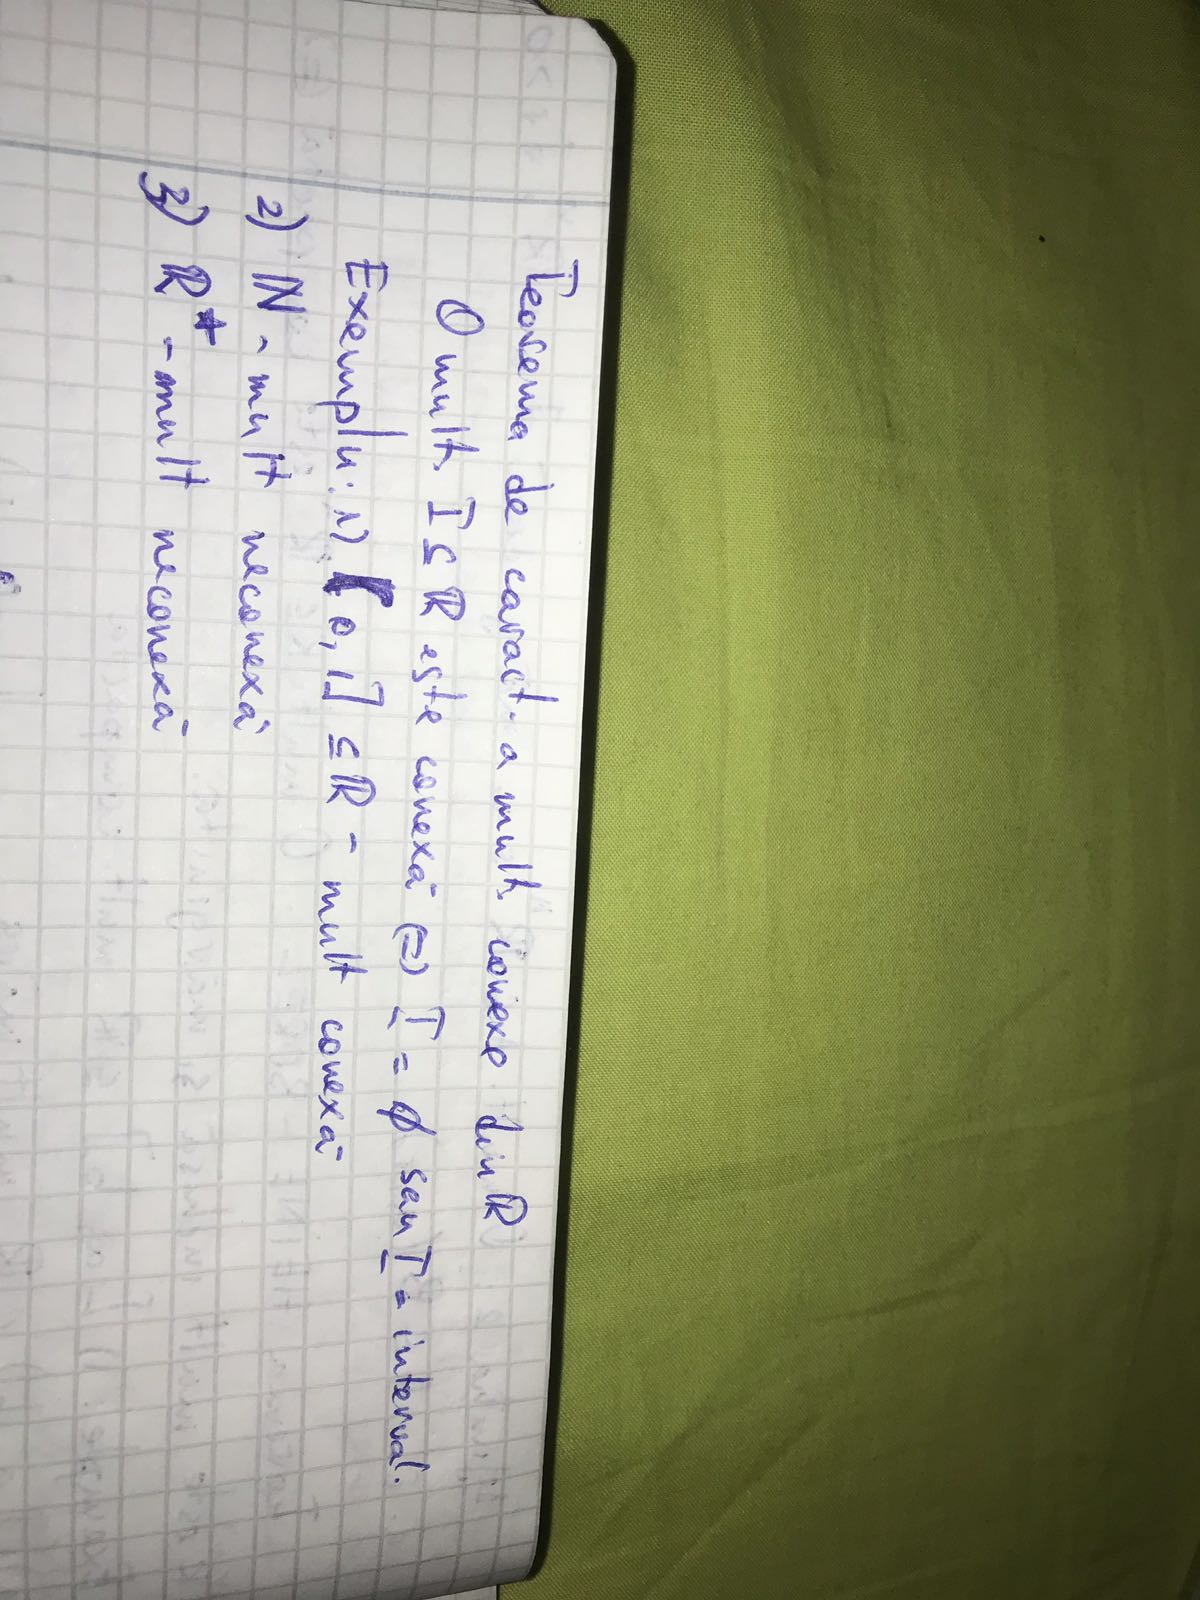 Teorema de caract. a mult. conexe din ℝ
O mult. I ⊆ ℝ este conexă (=) I = ∅ sau I = interval.
Exemplu: 1) [0,1] ⊆ ℝ - mult conexă
2) ℕ - mult neconexă
3) ℝ* - mult neconexă